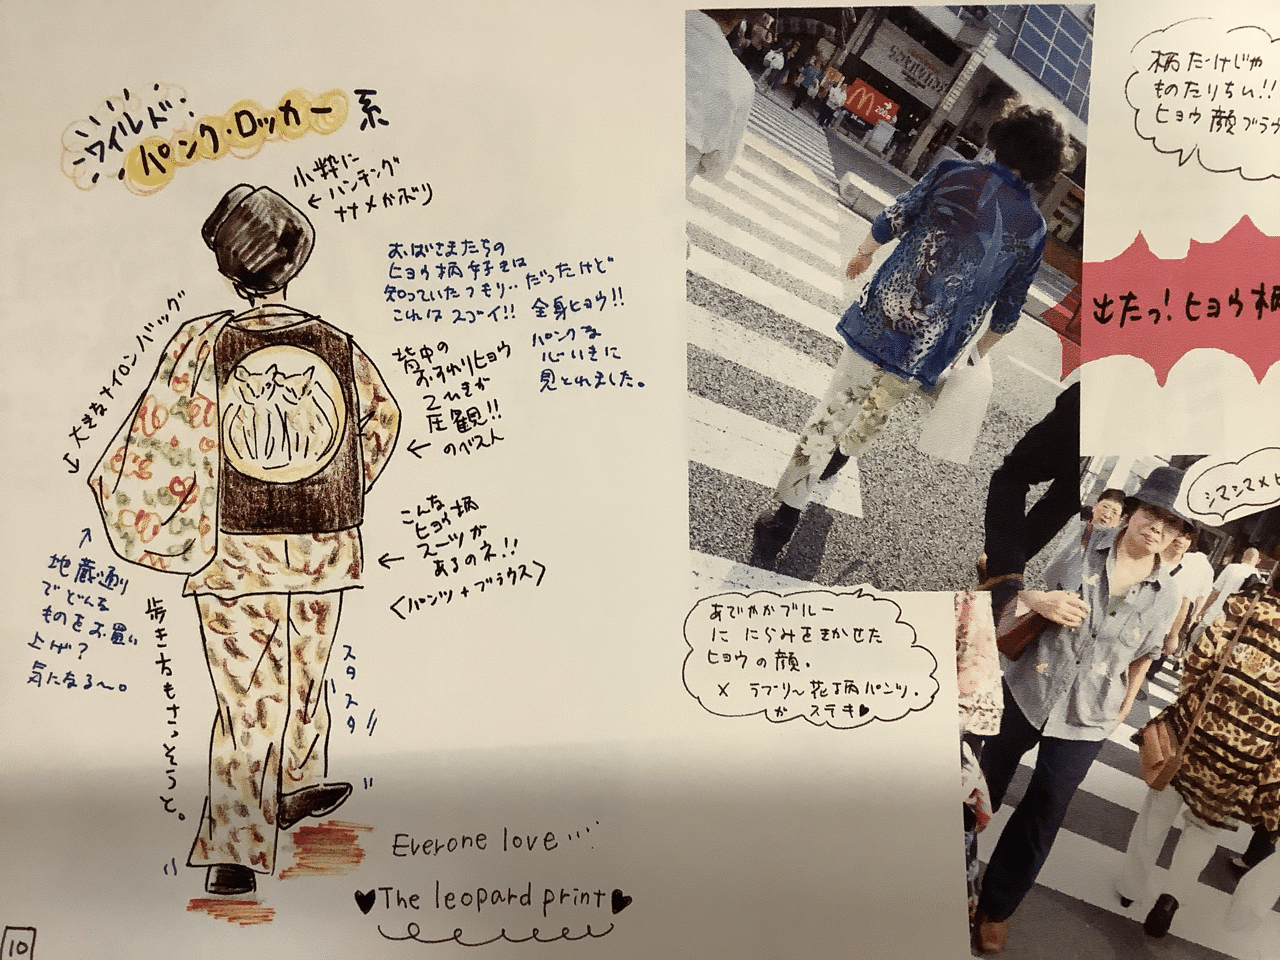 ワイルド
パンク・ロッカー系
小粋に
ハンチング
ナナメかぶり
おばさまたちの
ヒョウ柄好きは
知っていたつもり‥だったけど
これはスゴイ!! 全身ヒョウ!!
パンクな
心いきに
見とれました。
背中の
おすわりヒョウ
2ひきが
圧観!!
のベスト
← 大きなナイロンバッグ
こんな
ヒョウ柄
スーツが
あるのネ!!
<パンツ+ブラウス>
地蔵通り
でどんな
ものをお買い
上げ?
気になる〜。
歩き方もさっそうと。
スタスタ
Everone love…
♥The leopard print♥
10
M
200
柄だけじゃ
ものたりない!!
ヒョウ顔ブラウ
出たっ!ヒョウ柄
シマシマ×ヒ
あでやかブルー
に にらみをきかせた
ヒョウの顔。
× ラブリ〜花柄パンツ。
が ステキ♥